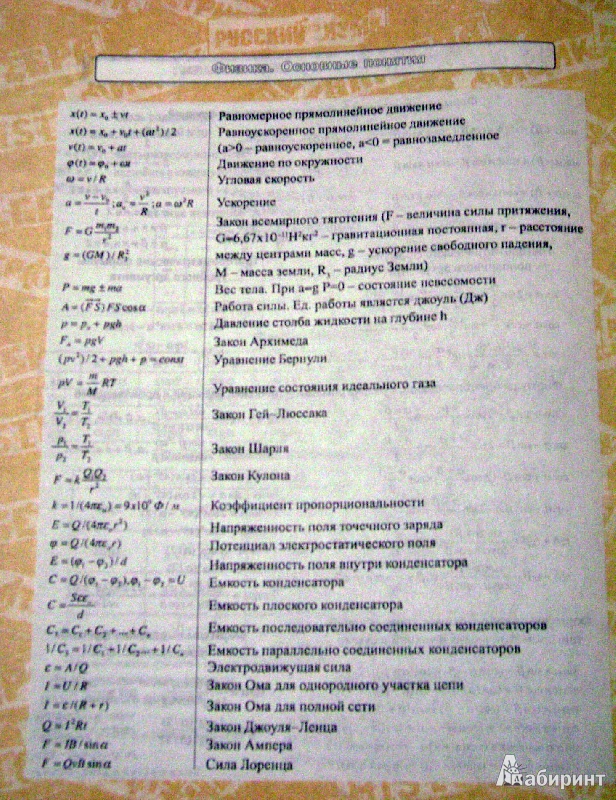 РУССКИЙ ЯЗЫК
Физика. Основные понятия
x(t) = x₀ ± vt Равномерное прямолинейное движение
x(t) = x₀ + v₀t + (at²)/2 Равноускоренное прямолинейное движение
v(t) = v₀ + at (a>0 – равноускоренное, a<0 = равнозамедленное
φ(t) = φ₀ + ωt Движение по окружности
ω = v/R Угловая скорость
a = (v – v₀)/t; aₙ = v²/R; a = ω²R Ускорение
F = G m₁m₂/r² Закон всемирного тяготения (F – величина силы притяжения,
G=6,67x10⁻¹¹Н²кг² – гравитационная постоянная, r – расстояние
g = (GM)/R₃² между центрами масс, g – ускорение свободного падения,
M – масса земли, R₃ – радиус Земли)
P = mg ± ma Вес тела. При a=g P=0 – состояние невесомости
A = (FS) FS cosα Работа силы. Ед. работы является джоуль (Дж)
p = p₀ + pgh Давление столба жидкости на глубине h
Fₐ = pgV Закон Архимеда
(pv²)/2 + pgh + p = const Уравнение Бернули
pV = m/M RT Уравнение состояния идеального газа
V₁/V₂ = T₁/T₂ Закон Гей–Люссака
p₁/p₂ = T₁/T₂ Закон Шарля
F = k Q₁Q₂/r² Закон Кулона
k = 1/(4πε₀) = 9x10⁹ Ф/м Коэффициент пропорциональности
E = Q/(4πε₀r²) Напряженность поля точечного заряда
φ = Q/(4πε₀r) Потенциал электростатического поля
E = (φ₁ – φ₂)/d Напряженность поля внутри конденсатора
C = Q/(φ₁ – φ₂), φ₁ – φ₂ = U Емкость конденсатора
C = Sεε₀/d Емкость плоского конденсатора
C₁ = C₁ + C₂ + ... + Cₙ Емкость последовательно соединенных конденсаторов
1/C₁ = 1/C₁ + 1/C₂ ... + 1/Cₙ Емкость параллельно соединенных конденсаторов
ε = A/Q Электродвижущая сила
I = U/R Закон Ома для однородного участка цепи
I = ε/(R + r) Закон Ома для полной сети
Q = I²Rt Закон Джоуля–Ленца
F = IB/sinα Закон Ампера
F = QvB sinα Сила Лоренца
Лабиринт